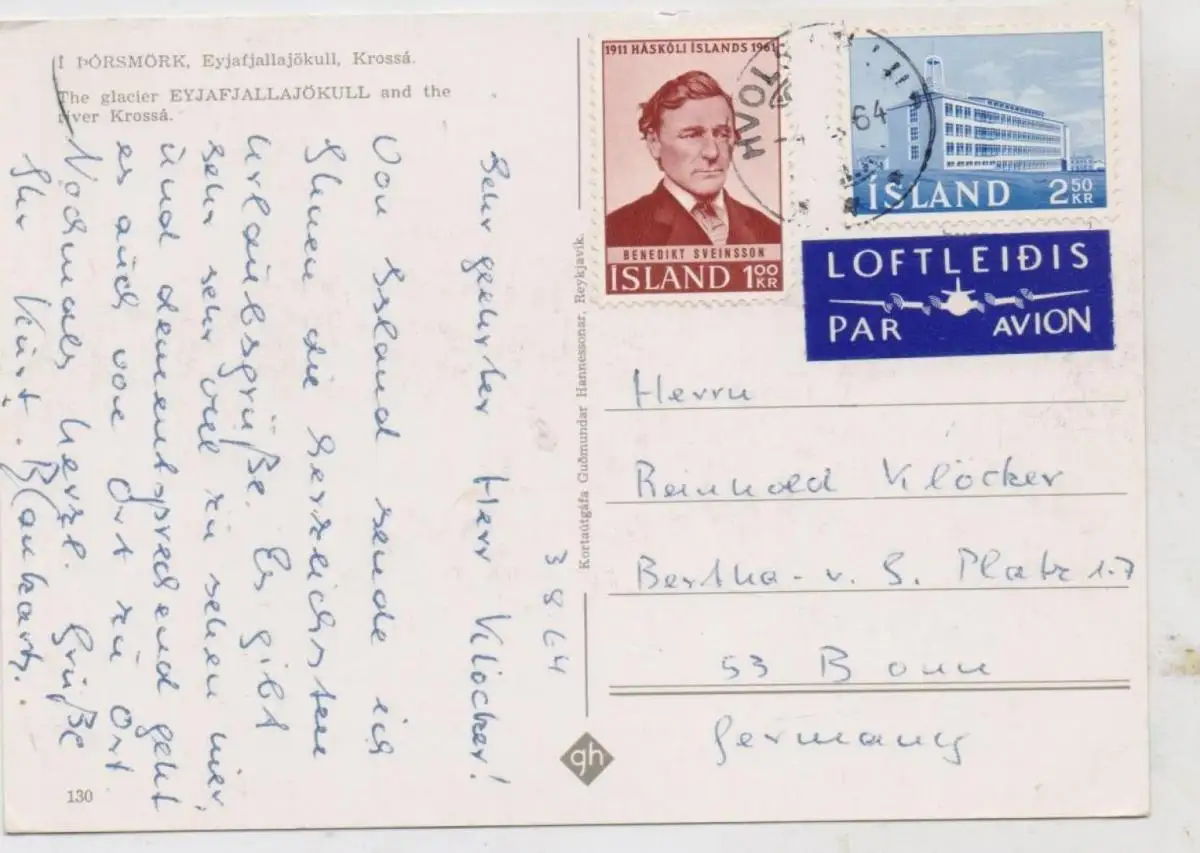 Í ÞÓRSMÖRK, Eyjafjallajökull, Krossá.
The glacier EYJAFJALLAJÖKULL and the
river Krossá.
3 8 64
Sehr geehrter Herr Klöcker!
Von Island sende ich
Ihnen die herzlichsten
Urlaubsgrüße. Es gibt
sehr sehr viel zu sehen hier,
und dementsprechend geht
es auch von Ort zu Ort
Nochmals herzl. Grüße
Ihr Kurt
130
Kortaútgáfa Guðmundar Hannessonar, Reykjavík.
gh
1911 HÁSKÓLI ÍSLANDS 1961
BENEDIKT SVEINSSON
ÍSLAND 100 KR
HVOL
64
ÍSLAND 2 50 KR
LOFTLEIÐIS
PAR AVION
Herrn
Reinhold Klöcker
Bertha-v. S. Platz 1-7
53 Bonn
Germany